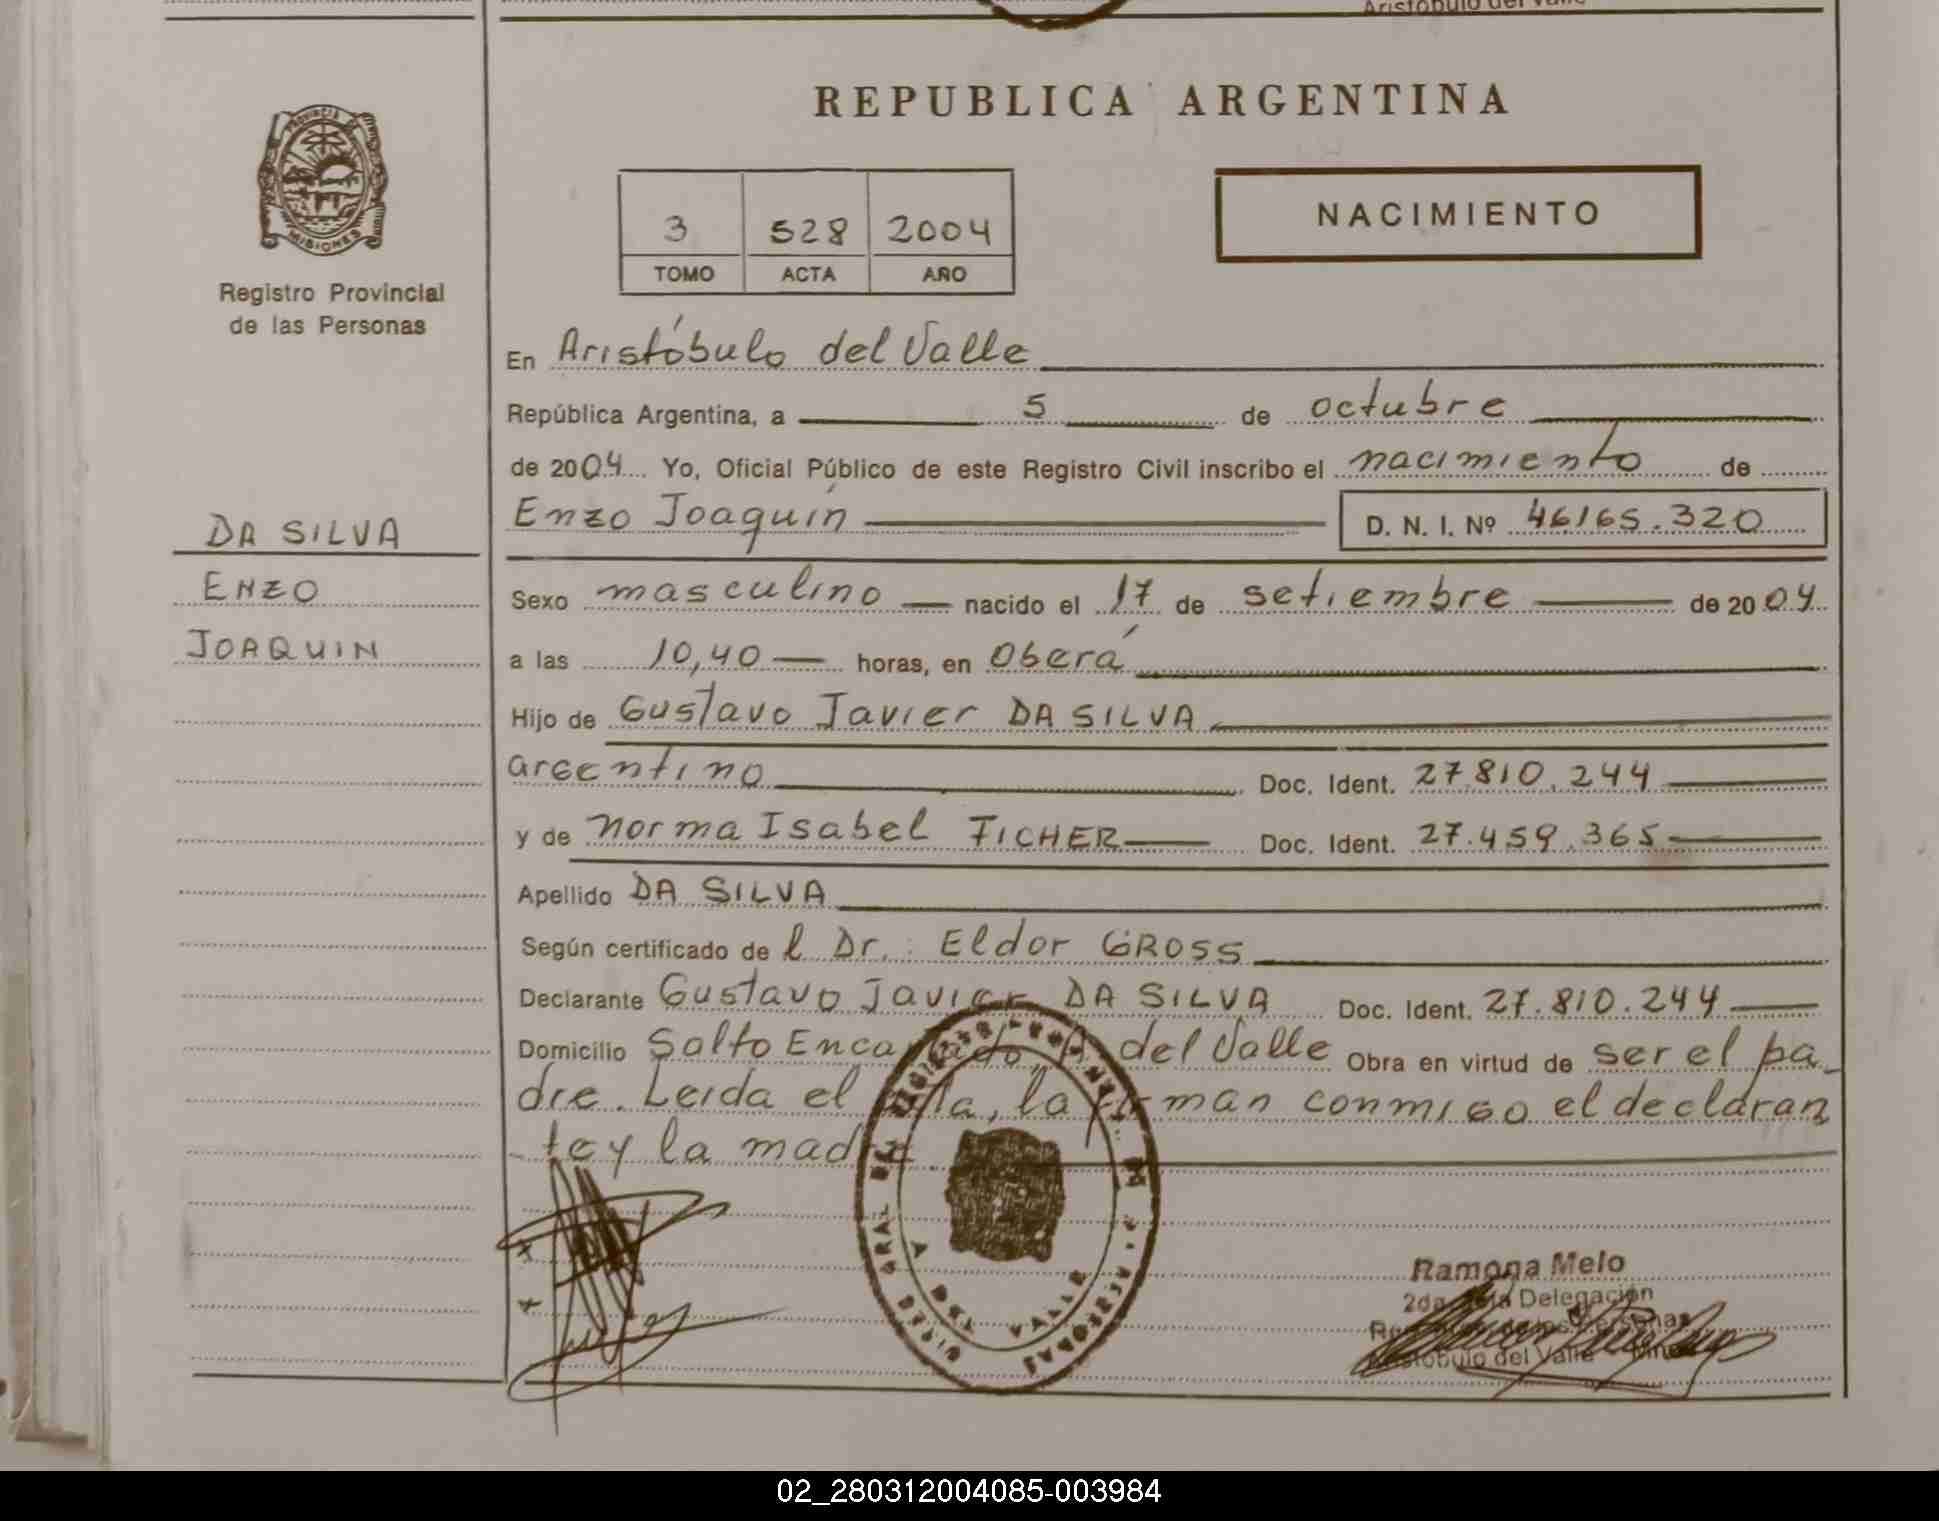 REPUBLICA ARGENTINA
PROVINCIA DE
MISIONES
Registro Provincial
de las Personas
3 528 2004
TOMO ACTA AÑO
NACIMIENTO
En Aristóbulo del Valle
República Argentina, a 5 de octubre
de 2004 Yo, Oficial Público de este Registro Civil inscribo el nacimiento de
Enzo Joaquín D. N. I. Nº 46165.320
DA SILVA
ENZO
JOAQUIN
Sexo masculino nacido el 17 de setiembre de 2004
a las 10,40 horas, en Oberá
Hijo de Gustavo Javier DA SILVA
argentino Doc. Ident. 27.810.244
y de Norma Isabel FICHER Doc. Ident. 27.459.365
Apellido DA SILVA
Según certificado de l Dr. Eldor GROSS
Declarante Gustavo Javier DA SILVA Doc. Ident. 27.810.244
Domicilio Salto Encantado, A. del Valle Obra en virtud de ser el pa_
dre. Leída el acta, la firman conmigo el declaran
_te y la madre.
Ramona Melo
Delegación
Aristóbulo del Valle
02_280312004085-003984